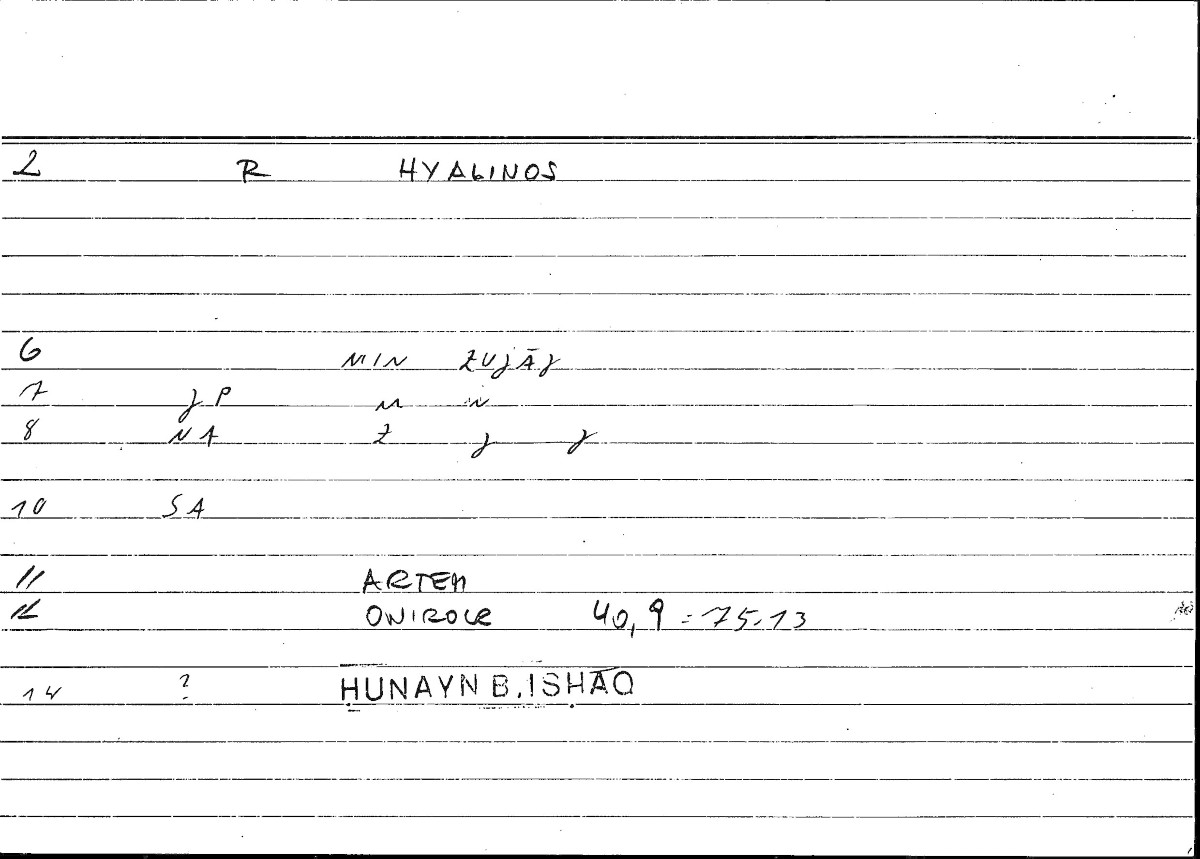 2 R HYALINOS
6 MIN ZUJĀJ
7 JP M N
8 NA Z J J
10 SA
11 ARTEM
12 ONIROCR 40,9 = 75.13
14 ? ḤUNAYN B. ISḤĀQ